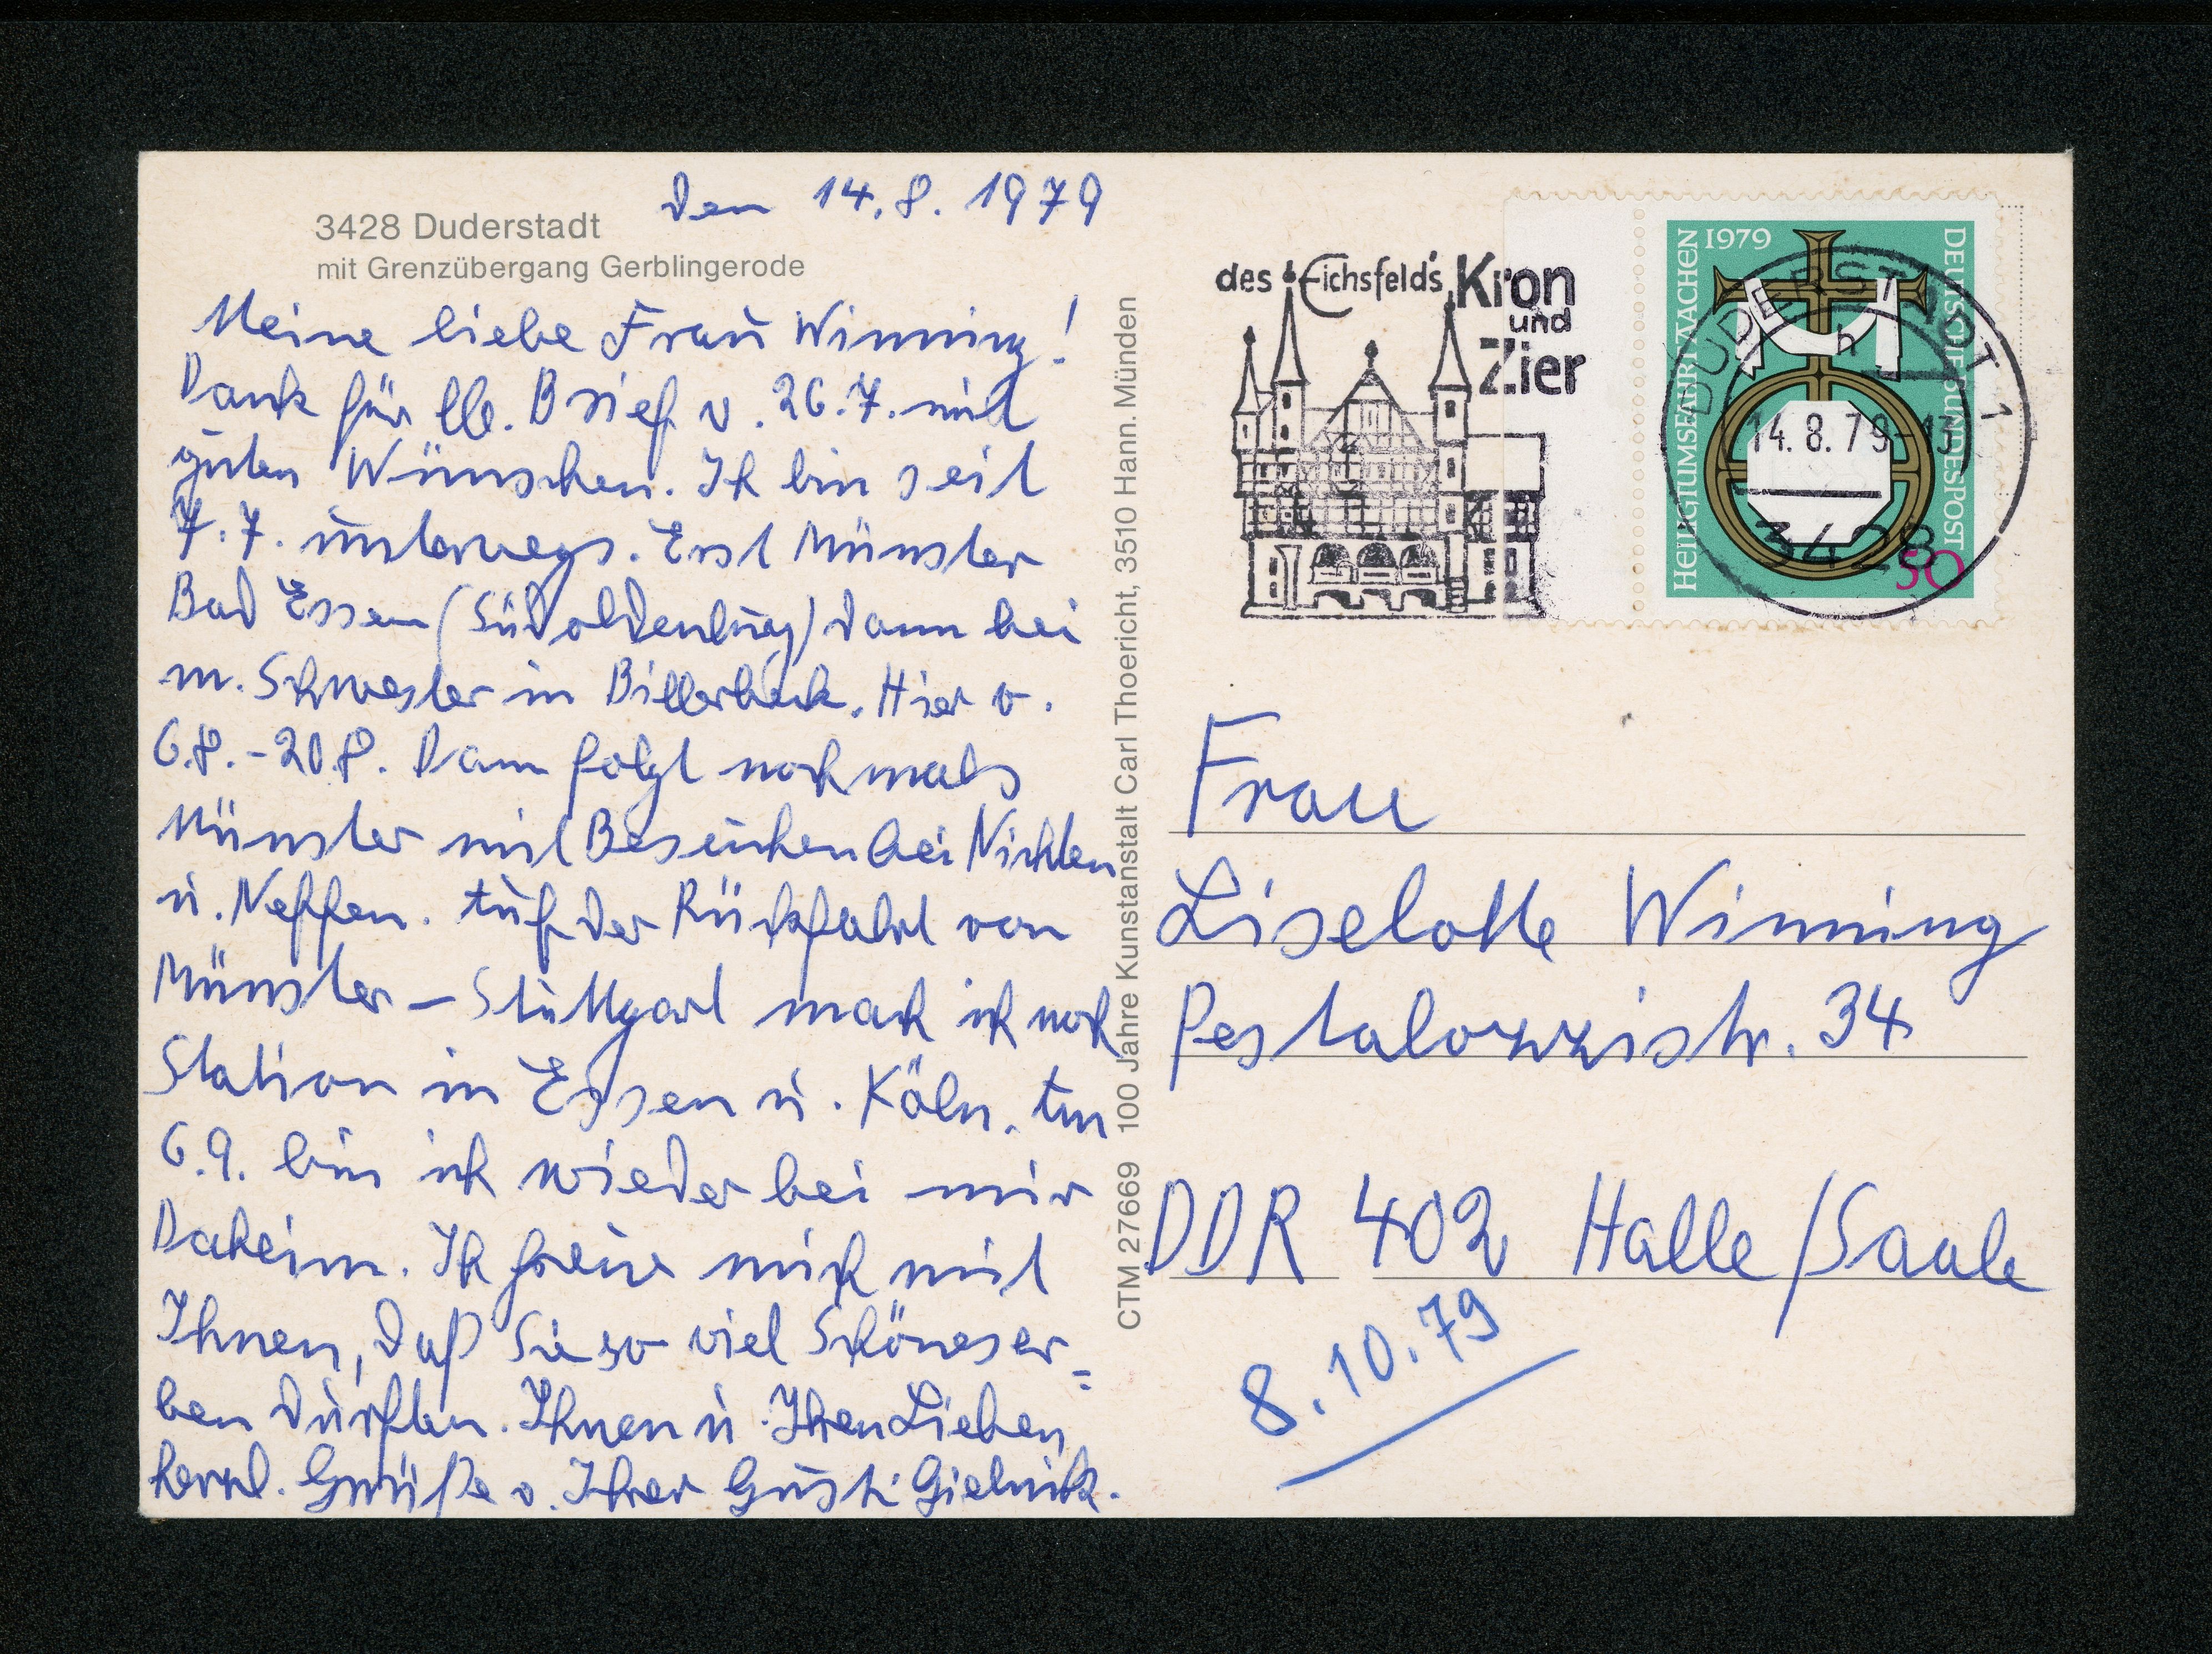 den 14.8.1979
3428 Duderstadt
mit Grenzübergang Gerblingerode
Meine liebe Frau Winning!
Dank für llb. Brief v. 26.7. mit
guten Wünschen. Ich bin seit
7.7. unterwegs. Erst Münster
Bad Essen (Südoldenburg) dann bei
m. Schwester in Billerbeck. Hier v.
6.8.-20.8. Dann folgt nochmals
Münster mit Besuchen bei Nichten
u. Neffen. Auf der Rückfahrt von
Münster – Stuttgart mach ich noch
Station in Essen u. Köln. Am
6.9. bin ich wieder bei mir
Daheim. Ich freue mich mit
Ihnen, daß Sie so viel Schönes er=
ben durften. Ihnen u. Ihren Lieben
herzl. Grüße v. Ihrer Gusti
CTM 27669 100 Jahre Kunstanstalt Carl Thoericht, 3510 Hann. Münden
des Eichsfeld's Kron
und
Zier
HEILIGTUMSFAHRT AACHEN
1979
DEUTSCHE BUNDESPOST
50
DUDERSTADT 1
h
14.8.79-13
3428
Frau
Liselotte Winning
Pestalozzistr. 34
DDR 402 Halle/Saale
8.10.79